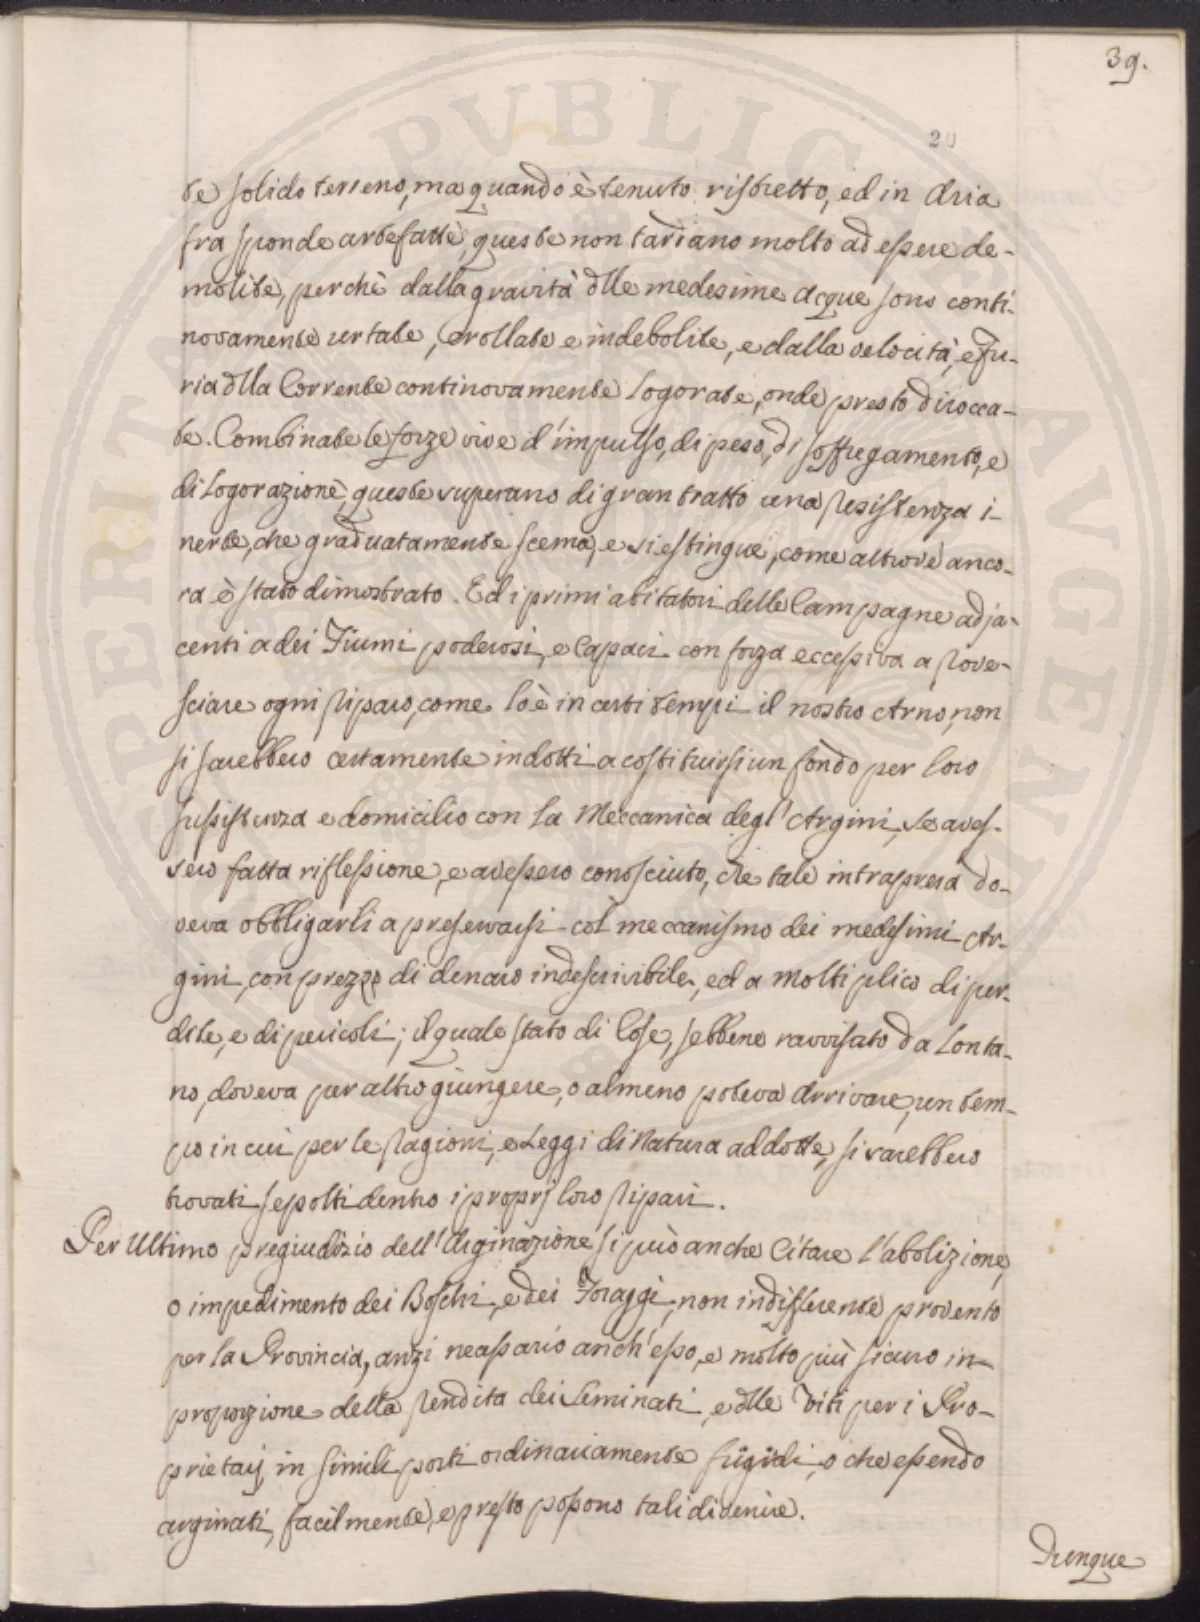 39.
20
te solido terreno, ma quando è tenuto ristretto, ed in Aria
fra sponde artefatte, queste non tardano molto ad essere de-
molite, perchè dalla gravità dlle medesime Acque sono conti-
novamente urtate, crollate e indebolite, e dalla velocità, e fu-
ria dlla Corrente continovamente Logorate, onde presto dirocca-
te. Combinate le forze vive d'impulso, di peso, di soffregamento, e
di Logorazione, queste superano di gran tratto una Resistenza i-
nerte, che graduatamente scema, e si estingue, come altrove anco-
ra è stato dimostrato. Ed i primi abitatori delle Campagne adja-
centi a dei Fiumi poderosi, e Capaci con forza eccessiva a Rove-
sciare ogni Riparo, come lo è in certi tempi il nostro Arno, non
si sarebbero certamente indotti a costituirsi un fondo per loro
sussistenza e domicilio con la Meccanica degl'Argini, se aves-
sero fatta riflessione, e avessero conosciuto, che tale intrapresa do-
veva obbligarli a preservarsi col meccanismo dei medesimi Ar-
gini, con prezzo di denaro indescrivibile, ed a moltiplico di per-
dite, e di pericoli; il quale stato di Cose, sebbene ravvisato da Lonta-
no, doveva per altro giungere, o almeno poteva Arrivare, un tem-
po in cui per le Ragioni, e Leggi di Natura addotte, si sarebbero
trovati sepolti dentro i proprj loro Ripari.
Per Ultimo pregiudizio dell'Arginazione si può anche Citare l'abolizione,
o impedimento dei Boschi, e dei Foraggi, non indifferente provento
per la Provincia, anzi necessario anch'esso, e molto più sicuro in
proporzione della Rendita dei Seminati, e dlle Viti per i Pro-
prietarj in simili posti ordinariamente frigidi, o che essendo
arginati, facilmente, e presto possono tali divenire.
Dunque
PERITA PUBLICA AUGENDO